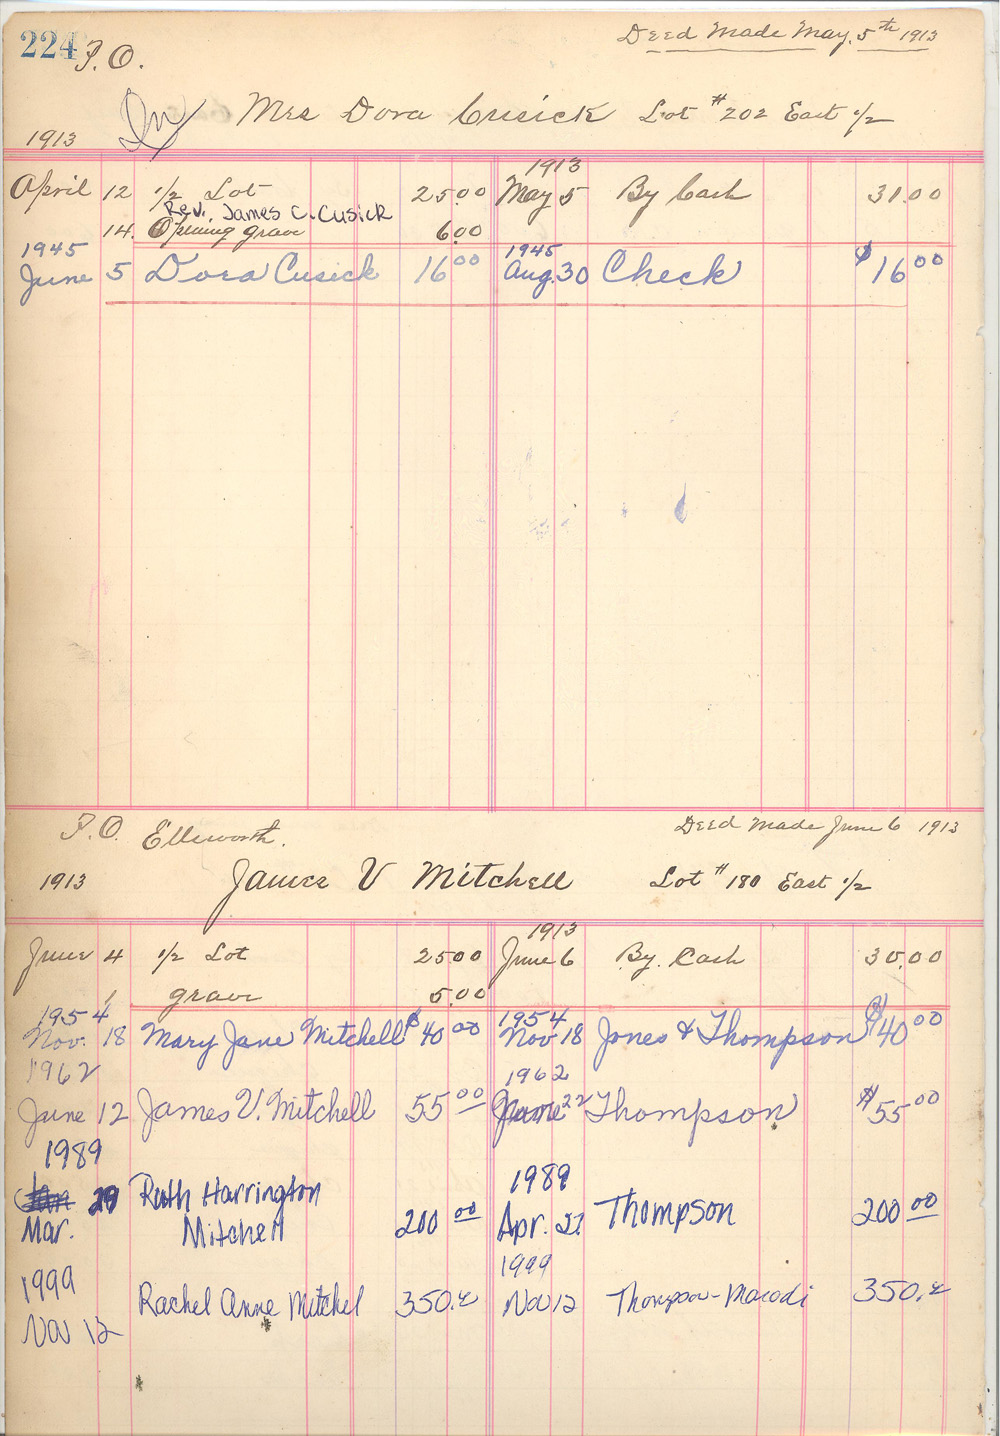 224 P.O.
Deed Made May. 5th 1913
1913 Mrs Dora Cusick Lot #202 East 1/2
1913
April 12 1/2 Lot 25.00 May 5 By Cash 31.00
Rev. James C. Cusick
14. Opening grave 6.00
1945 1945
June 5 Dora Cusick 16 00 Aug. 30 Check $16 00
P.O. Ellsworth. Deed Made June 6 1913
1913 James V Mitchell Lot #180 East 1/2
1913
June 4 1/2 Lot 25 00 June 6 By. Cash 30.00
grave 5.00
1954 1954
Nov. 18 Mary Jane Mitchell $40 00 Nov 18 Jones & Thompson $40 00
1962 1962
June 12 James V. Mitchell 55 00 June 22 Thompson $55 00
1989 1989
Mar. 29 Ruth Harrington
Mitchell 200 00 Apr. 27. Thompson 200 00
1999 1999
Nov 12 Rachel Anne Mitchel 350. Nov 12 Thompson- 350.